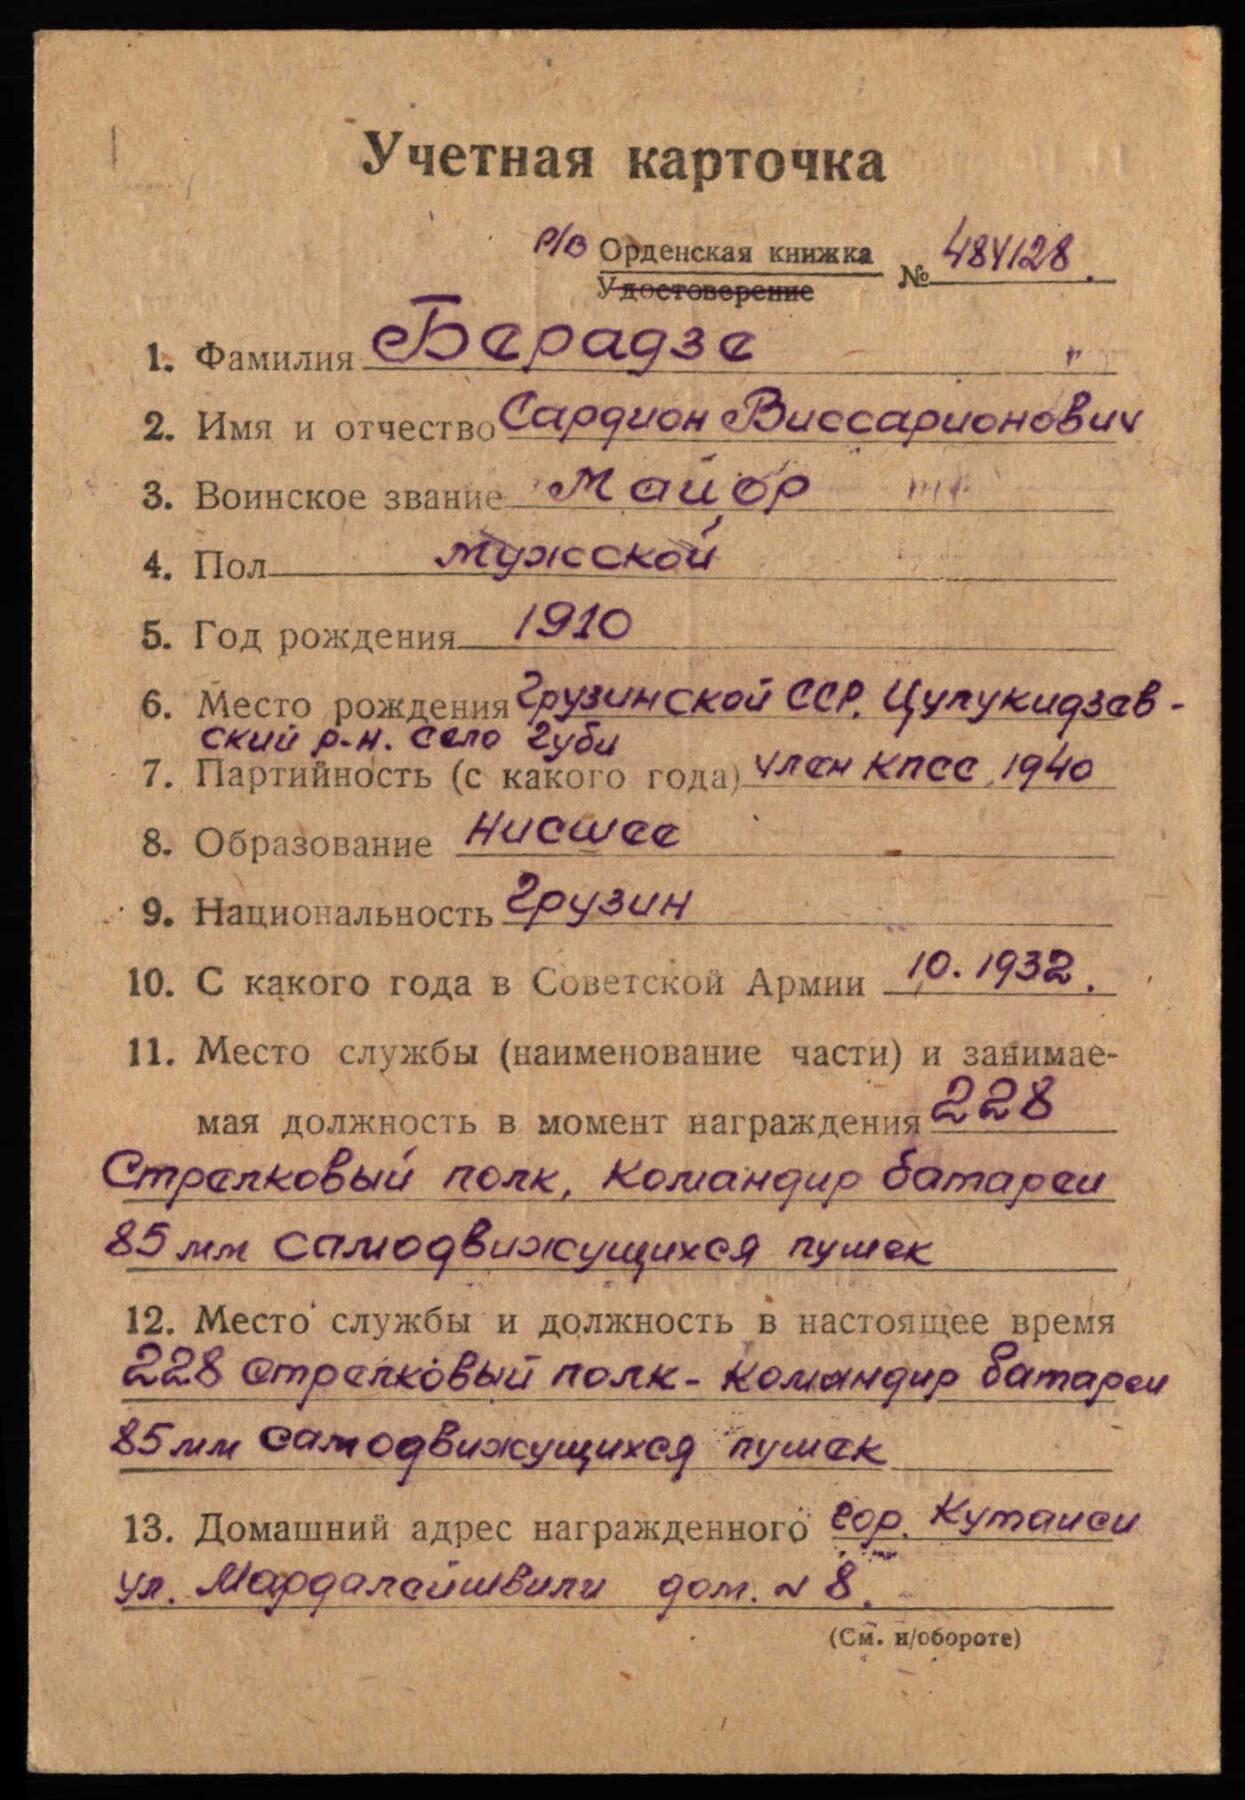 Учетная карточка
Р/В Орденская книжка № 484128.
Удостоверение
1. Фамилия Берадзе
2. Имя и отчество Сардион Виссарионович
3. Воинское звание Майор
4. Пол мужской
5. Год рождения 1910
6. Место рождения Грузинской ССР. Цулукидзев-
ский р-н. село Губи
7. Партийность (с какого года) член КПСС, 1940
8. Образование Нисшее
9. Национальность Грузин
10. С какого года в Советской Армии 10.1932.
11. Место службы (наименование части) и занимае-
мая должность в момент награждения 228
Стрелковый полк, Командир батареи
85 мм самодвижущихся пушек
12. Место службы и должность в настоящее время
228 стрелковый полк - Командир батареи
85 мм самодвижущихся пушек
13. Домашний адрес награжденного гор. Кутаиси
ул. Мардалейшвили дом. N 8.
(См. н/обороте)